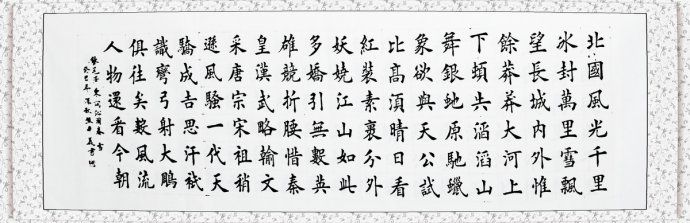 北國風光千里
冰封萬里雪飄
望長城內外惟
餘莽莽大河上
下頓失滔滔山
舞銀蛇原馳蠟
象欲與天公試
比高須晴日看
紅裝素裹分外
妖嬈江山如此
多嬌引無數英
雄競折腰惜秦
皇漢武略輸文
采唐宗宋祖稍
遜風騷一代天
驕成吉思汗祗
識彎弓射大鵰
俱往矣數風流
人物還看今朝
東詞沁園春雪
癸巳年